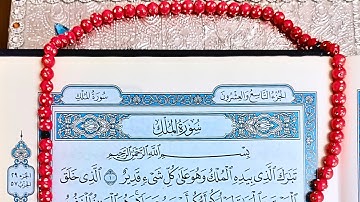 الجُزْءُ التَّاسِعُ وَالعِشْرُونَ
سُورَةُ المُلْكِ
سُورَةُ المُلْكِ
بِسْمِ اللَّهِ الرَّحْمَٰنِ الرَّحِيمِ
تَبَٰرَكَ ٱلَّذِى بِيَدِهِ ٱلْمُلْكُ وَهُوَ عَلَىٰ كُلِّ شَىْءٍ قَدِيرٌ ١ ٱلَّذِى خَلَقَ
الجزء ٢٩
الحزب ٥٧